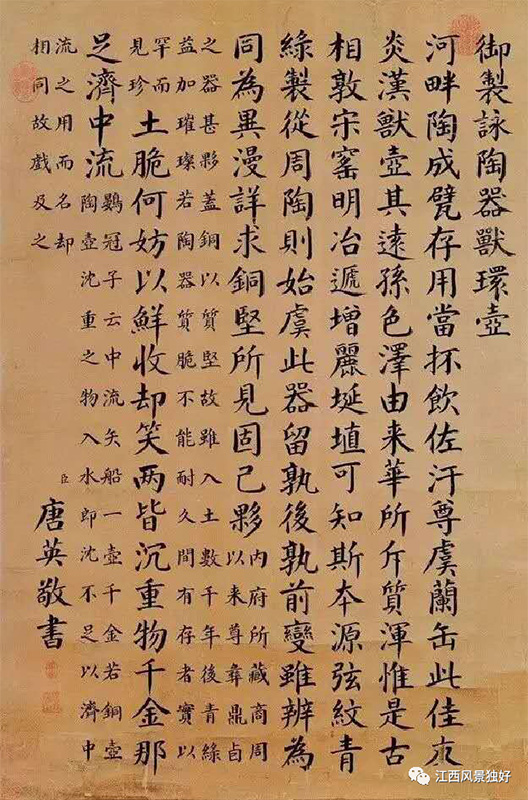 御製詠陶器獸環壺
河畔陶成甓存用當抔飲佐汙尊虞蘭缶此佳
炎漢獸壺其遠孫色澤由来華所斥質渾惟是古
相敦宋窰明冶遞增麗埏埴可知斯本源弦紋青
綠製從周陶則始虞此器留孰後孰前變雖辨為
同為異漫詳求銅堅所見固已夥
内府所藏商周
以来尊彝鼎卣
之器甚夥蓋銅以質堅故雖入土數千年後青綠
益加璀璨若陶器質脆不能耐久間有存者實以
罕而
見珍
土脆何妨以鮮收却笑两皆沉重物千金那
足濟中流
鶡冠子云中流失船一壺千金若銅壺
陶壺沈重之物入水即沈不足以濟中
流之用而名却
相同故戲及之
臣唐英敬書
江西风景独好